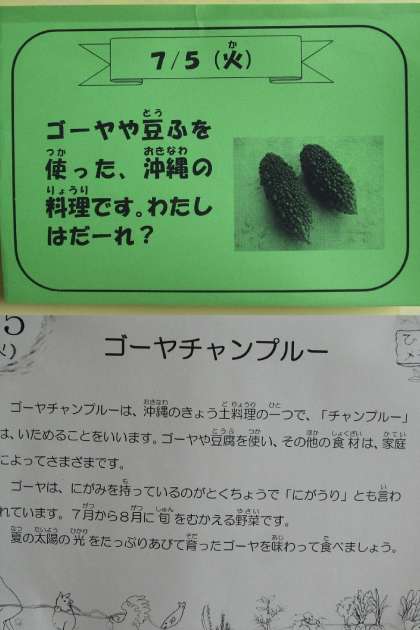 7/5（火）
ゴーヤや豆ふを
使った、沖縄の
料理です。わたし
はだーれ？
5
火)
ゴーヤチャンプルー
ゴーヤチャンプルーは、沖縄のきょう土料理の一つで、「チャンプルー」
は、いためることをいいます。ゴーヤや豆腐を使い、その他の食材は、家庭
によってさまざまです。
ゴーヤは、にがみを持っているのがとくちょうで「にがうり」とも言わ
れています。７月から８月に旬をむかえる野菜です。
夏の太陽の光をたっぷりあびて育ったゴーヤを味わって食べましょう。